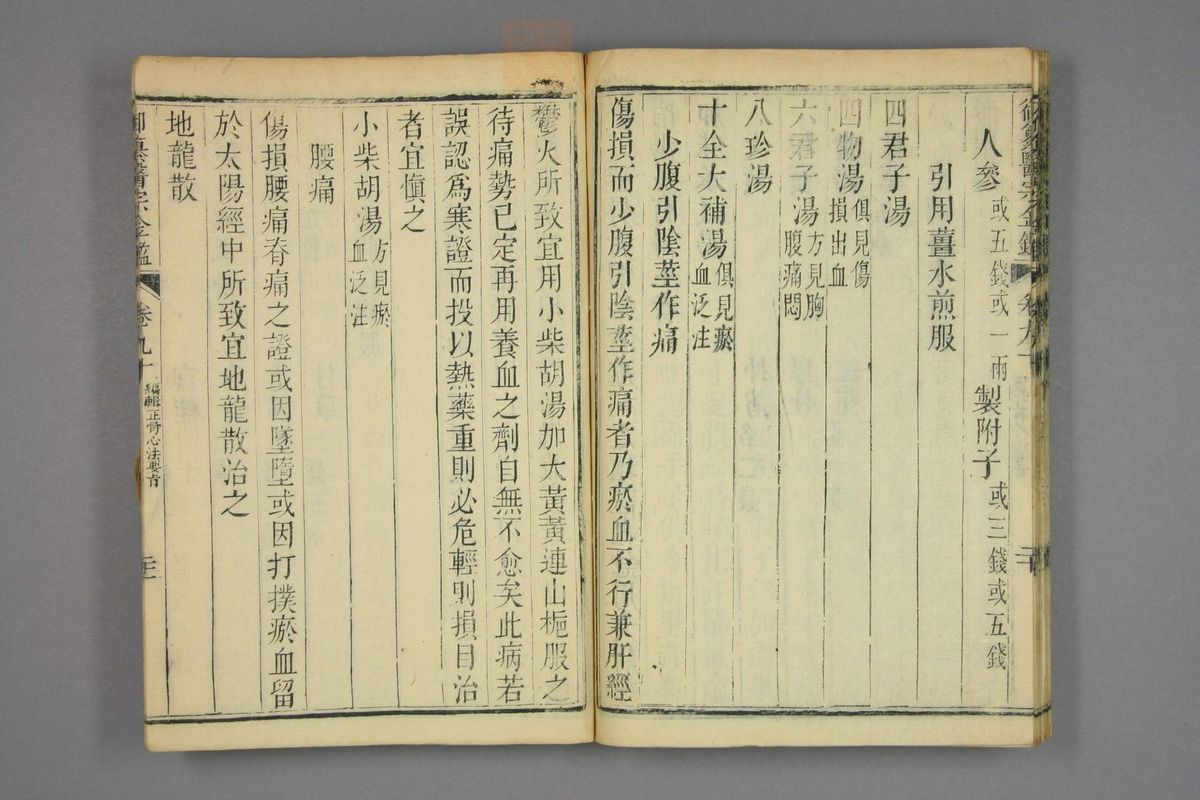 人參或五錢或一兩製附子或三錢或五錢
引用薑水煎服
四君子湯
四物湯俱見傷損出血
六君子湯方見胸腹痛悶
八珍湯
十全大補湯俱見瘀血泛注
少腹引陰莖作痛
傷損而少腹引陰莖作痛者乃瘀血不行兼肝經
鬱火所致宜用小柴胡湯加大黃黃連山梔服之
待痛勢已定再用養血之劑自無不愈矣此病若
誤認爲寒證而投以熱藥重則必危輕則損目治
者宜愼之
小柴胡湯方見瘀血泛注
腰痛
傷損腰痛脊痛之證或因墜墮或因打撲瘀血留
於太陽經中所致宜地龍散治之
地龍散
御纂醫宗金鑑 卷九十 編輯正骨心法要旨